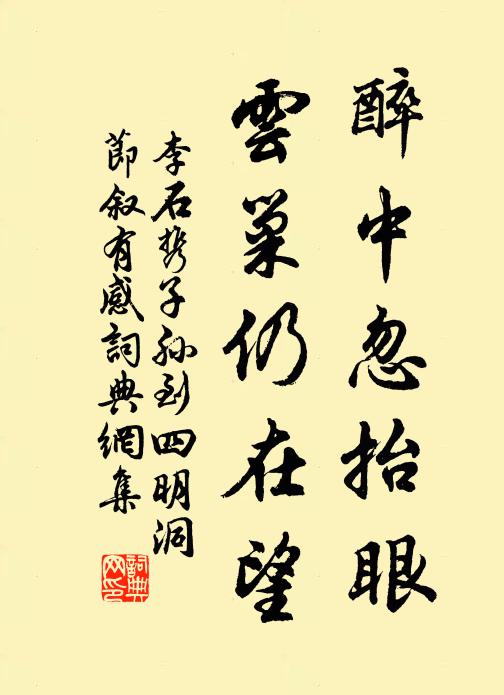 醉中忽抬眼
雲巢仍在望
李石携子孫到四明洞
節叙有感詞典網集
詞典網印